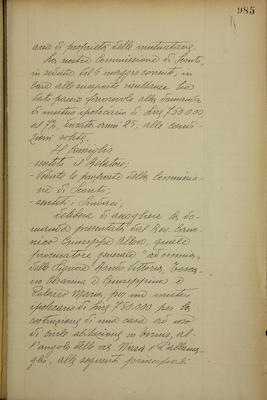 985
aria di proprietà della mutuataria.
La nostra Commissione di Sconto,
in seduta del 6 maggio corrente, in
base alle suesposte risultanze ha
dato parere favorevole alla domanda
di mutuo ipotecario di Lire 750.000
al 7%, durata anni 25, alle condi-
zioni solite.
Il Consiglio
- sentito il Relatore;
- Vedute le proposte della Commissio-
ne di Sconto;
- sentiti i Sindaci;
delibera di accogliere la do-
manda presentata dal Rev. Cano-
nico Giuseppe Allera, quale
procuratore generale "ad omnia"
delle Signore Vittoria,
e Giuseppina e
Maria, per un mutuo
ipotecario di Lire 750.000 per la
costruzione di una casa ad uso
di civile abitazione in Torino, al-
l'angolo delle vie Nizza e
alle seguenti principali